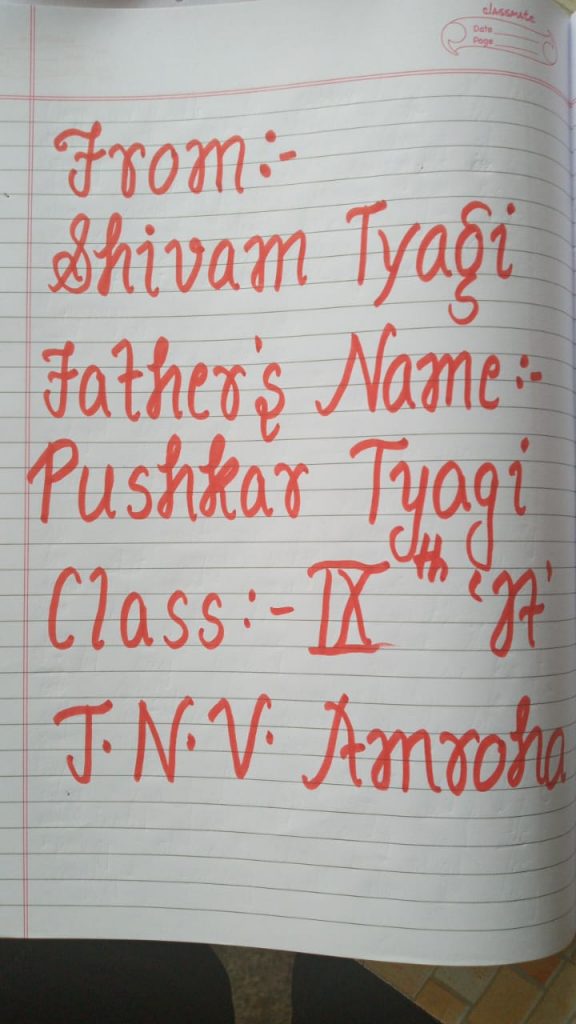 classmate
Date
Page
From:-
Shivam Tyagi
Father's Name:-
Pushkar Tyagi
Class:- IXth 'A'
J.N.V. Amroha